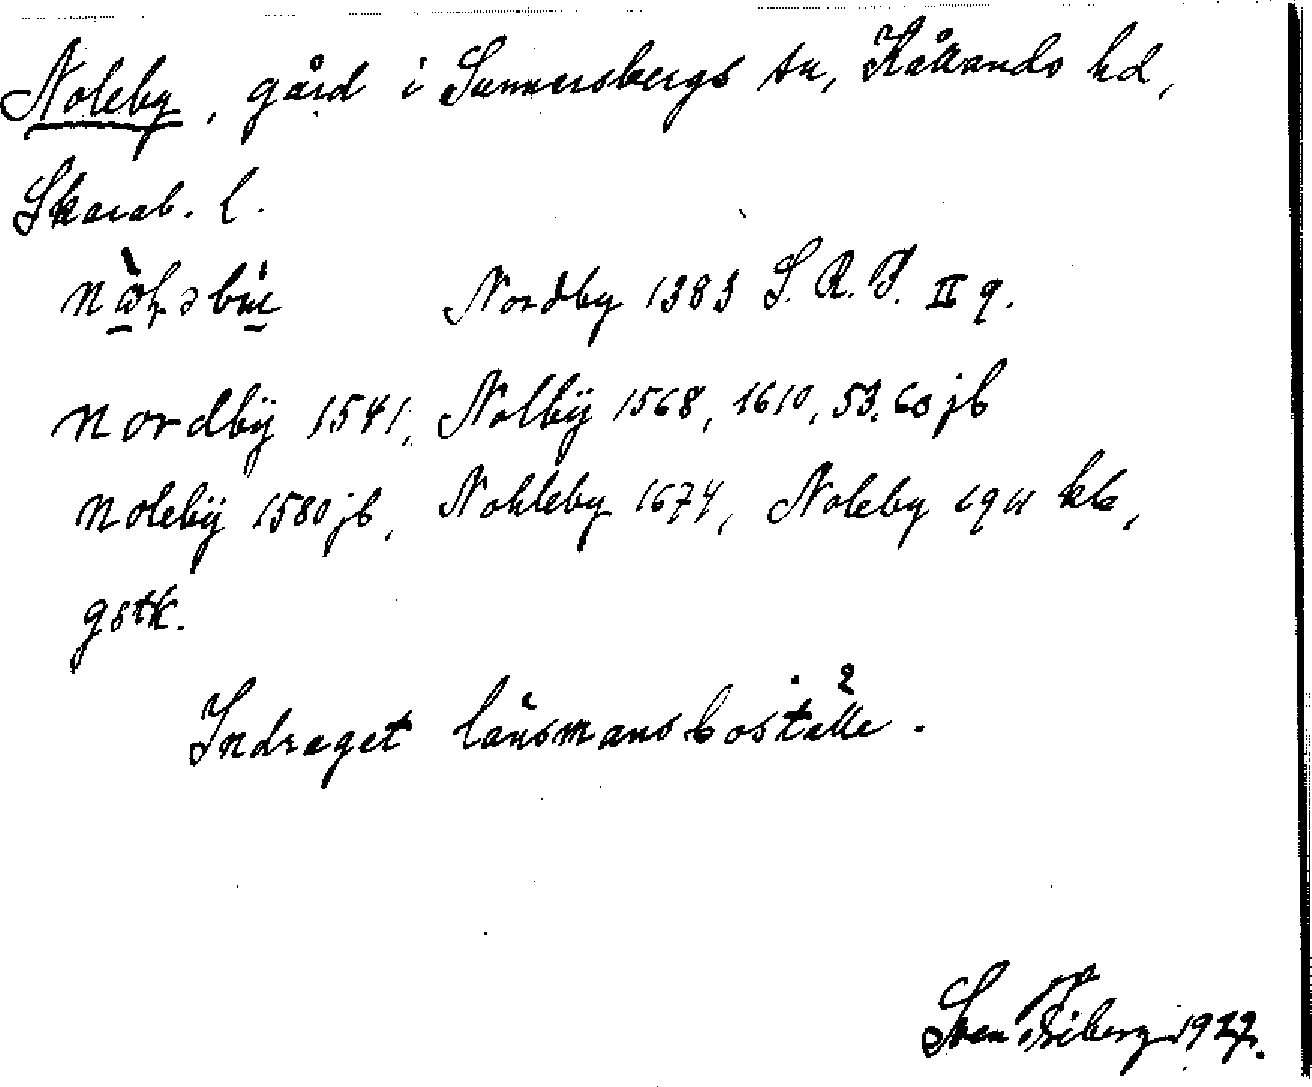 Noleby, gård i Sunnersbergs sn, Kållands hd,
Skarab. l.
Nordby 1383 S. R. P. II 9.
Nordbÿ 1541, Nolbÿ 1568, 1610, 53, 60 jb
Nolebÿ 1580 jb, Nohleby 1674, Noleby 1911 kb,
gstk.
Indraget länsmansboställe.
Sven Friberg 1927.